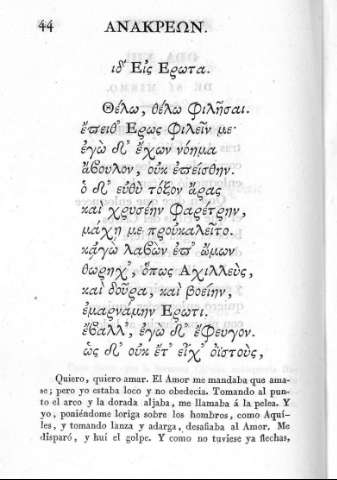 44 ΑΝΑΚΡΕΩΝ.
ιδ' Εἰς Ερωτα.
Θέλω, θέλω φιλῆσαι.
ἔπειθ' Ερως φιλεῖν με·
ἐγὼ δ' ἔχων νόημα
ἄβουλον, οὐκ ἐπείσθην.
ὁ δ' εὐθὺ τόξον ἄρας
καὶ χρυσέην φαρέτρην,
μάχῃ με προὐκαλεῖτο.
κᾀγὼ λαβὼν ἐπ' ὤμων
θωρηχ', ὅπως Αχιλλεὺς,
καὶ δοῦρα, καὶ βοείην,
ἐμαρνάμην Ερωτι.
ἔβαλλ', ἐγὼ δ' ἔφευγον.
ὡς δ' οὐκ ἔτ' εἶχ' ὀϊστοὺς,
Quiero, quiero amar. El Amor me mandaba que ama-
se; pero yo estaba loco y no obedecia. Tomando al pun-
to el arco y la dorada aljaba, me llamaba á la pelea. Y
yo, poniéndome loriga sobre los hombros, como Aquí-
les, y tomando lanza y adarga, desafiaba al Amor. Me
disparó, y hui el golpe. Y como no tuviese ya flechas,